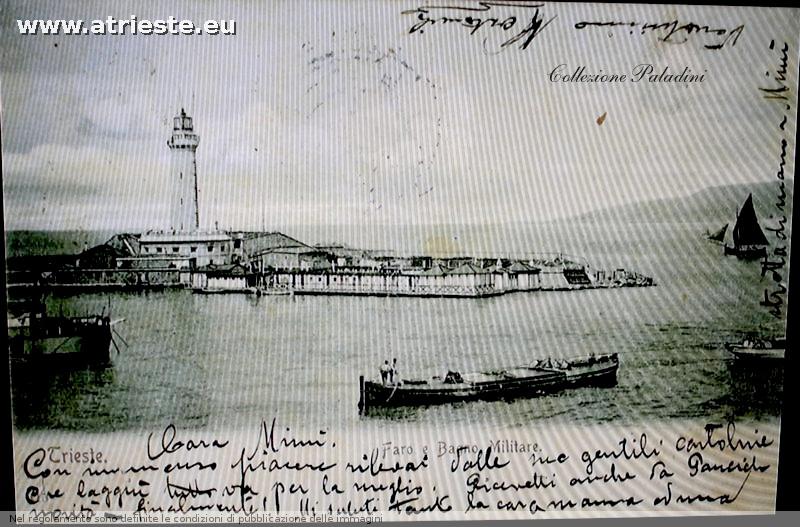 www.atrieste.eu
Collezione Paladini
stretta di mano a Mimì
Trieste.
Faro e Bagno Militare.
Cara Mimì.
Con immenso piacere rilevai dalle sue gentili cartoline
che laggiù tutto va per la meglio. Ricevetti anche da
finalmente! Mi saluti tanto la cara mamma ed una
Nel regolamento sono definite le condizioni di pubblicazione delle immagini